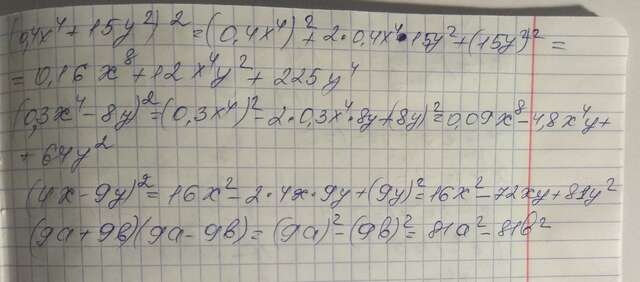 (0,4x⁴+15y²)² = (0,4x⁴)²+2·0,4x⁴·15y²+(15y²)² =
= 0,16x⁸+12x⁴y²+225y⁴
(0,3x⁴-8y)²=(0,3x⁴)²-2·0,3x⁴·8y+(8y)²=0,09x⁸-4,8x⁴y+
+64y²
(4x-9y)²=16x²-2·4x·9y+(9y)²=16x²-72xy+81y²
(9a+9b)(9a-9b)=(9a)²-(9b)²=81a²-81b²